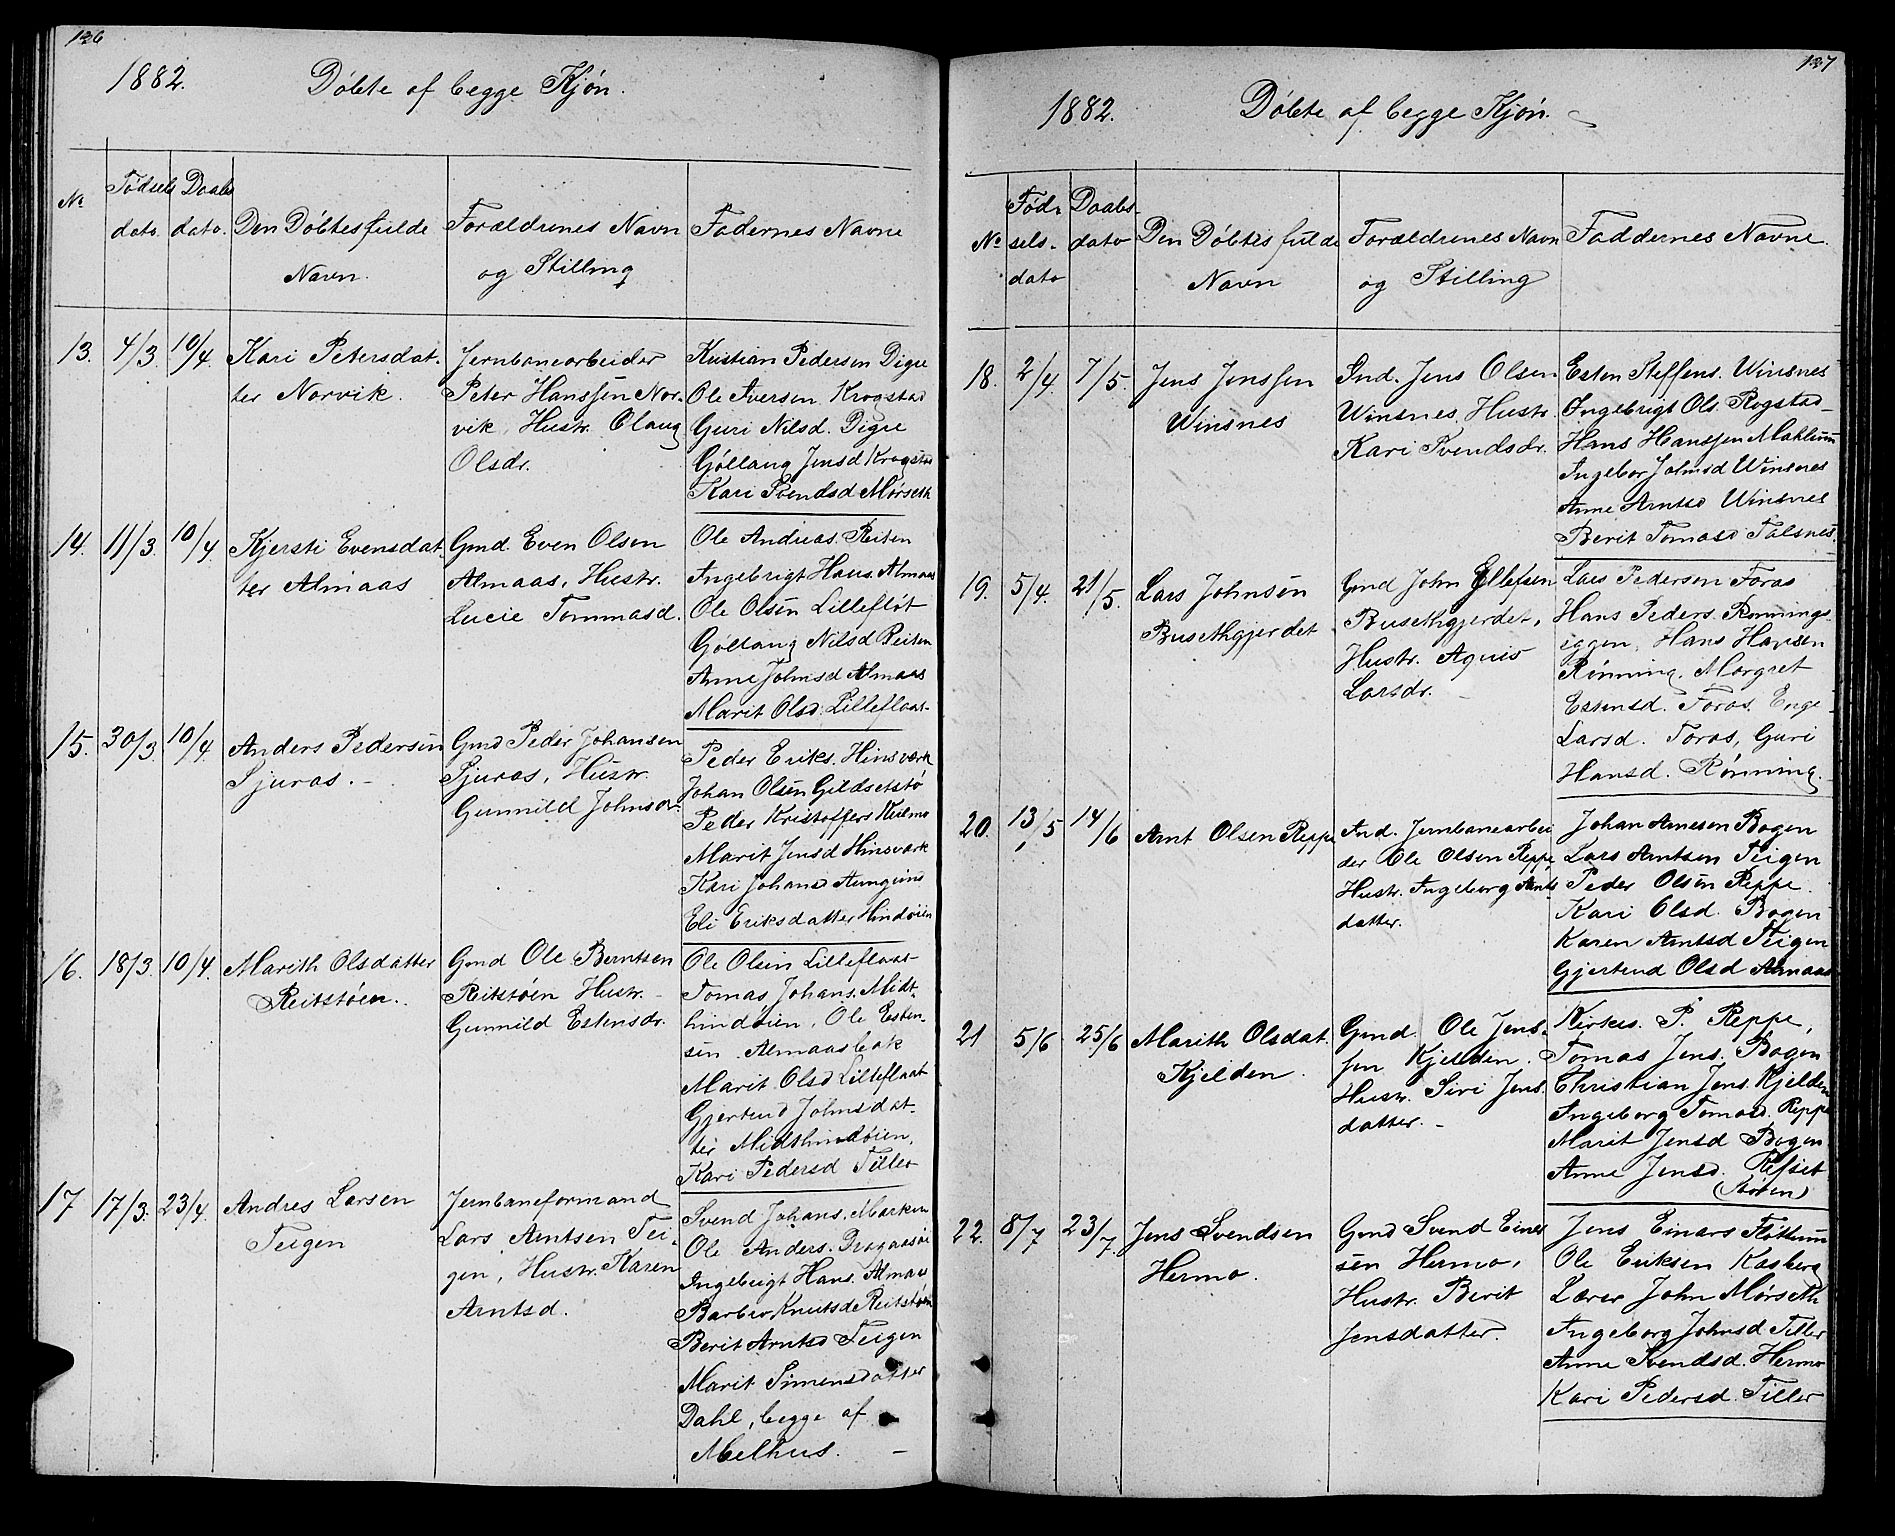 136
1882. Döbte af begge Kjön.
No
Födsels dato.
Daabs dato.
Den Döbtes fulde Navn.
Forældrenes Navn og Stilling
Fadernes Navne
13. 4/3 10/4.
Kari Petersdat-
ter Norvik.
Jernbanearbeider
Peter Hanssen Nor-
vik, Hustr. Olaug
Olsdr.
Kristian Pedersen Digre
Ole Iversen Krogstad
Guri Nilsd. Digre
Göllaug Jensd Krogstad
Kari Svendsd Mörseth
14. 11/3. 10/4
Kjersti Evensdat-
ter Almaas
Gmd. Even Olsen
Almaas, Hustr.
Lucie Tommasd.
Ole Andreas. Reiten
Ingebrigt Hans. Almaas
Ole Olsen Lilleflöt
Göllaug Nilsd Reiten
Anne Johnsd Almaas
Marit Olsd. Lilleflaat
15. 30/3. 10/4
Anders Pedersen
Sjuras.-
Gmd Peder Johansen
Sjuras, Hustr.
Gunnild Johnsdr.
Peder Eriks. Hinsverk
Johan Olsen Gildsetstö
Peder Kristoffers Kulmo
Marit Jensd Hinsverk
Kari Johansd
Eli Eriksdatter Hindöien
16. 18/3. 10/4.
Marith Olsdatter
Reitstöen.
Gmd Ole Berntsen
Reitstöen Hustr.
Gunnild Estensdr.
Ole Olsen Lilleflaat
Tomas Johans. Midt-
hindöien, Ole Esten-
sen Almaasbak
Marit Olsd Lilleflaat
Gjertrud Johnsdat-
ter Midthindöien,
Kari Pedersd Tiller
17 17/3. 23/4.
Andres Larsen
Teigen
Jernbaneformand
Lars Arntsen Tei-
gen, Hustr. Karen
Arntsd.
Svend Johans. Marken
Ole Anders.
Ingebrigt Hans. Almaas
Barbro Knutsd Reitstöen
Berit Arntsd Teigen
Marit Simensdatter
Dahl, begge af
Melhus. -
137
1882. Döbte af begge Kjön.
No
Föd-
sels-
dato
Daabs-
dato
Den Döbtes fulde
Navn
Forældrenes Navn
og Stilling
Faddernes Navne.
18. 2/4 7/5.
Jens Jenssen
Winsnes
Ind. Jens Olsen
Winsnes, Hustr.
Kari Svendsdr.
Esten Steffens. Winsnes
Ingebrigt Ols. Rogstad
Hans Hanssen Mahlum
Ingebor Johnsd Winsnes
Anne Arntsd Winsnes
Berit Tomasd Talsnes.
19. 5/4. 21/5.
Lars Johnsen
Busethgjerdet
Gmd John Ellefsen
Busethgjerdet,
Hustr. Agnis
Larsdr.
Lars Pedersen Foras
Hans Peders. Rönnings-
eggen, Hans Hansen
Rönning, Margret
Estensd. Foras, Enge
Larsd. Foras, Guri
Hansd. Rönning.
20. 13/5 14/6
Arnt Olsen Reppe
Ind. Jernbanearbei
der Ole Olsen Reppe
Hustr. Ingeborg Arnts
datter.
Johan Arnesen Bogen
Lars Arntsen Teigen
Peder Olsen Reppe.
Kari Olsd. Bogen
Karen Arntsd Teigen
Gjertrud Olsd Almaas
21 5/6 25/6
Marith Olsdat.
Kjelden.
Gmd. Ole Jens-
sen Kjelden.
Hustr. Siri Jens-
datter.-
Kirkes. P. Reppe,
Tomas Jens. Bogen
Christian Jens. Kjelden
Ingeborg Tomasd. Reppe
Marit Jensd Bogen
Anne Jensd. Refset
(Stören)
22. 8/7 23/7.
Jens Svendsen
Hermo.
Gmd Svend Einer
sen Hermo,
Hustr. Berit
Jensdatter.
Jens Einars Flöttum
Ole Eriksen Kosberg
Lærer John Mörseth
Ingeborg Johnsd Tiller
Anne Svendsd. Hermo
Kari Pedersd. Tiller